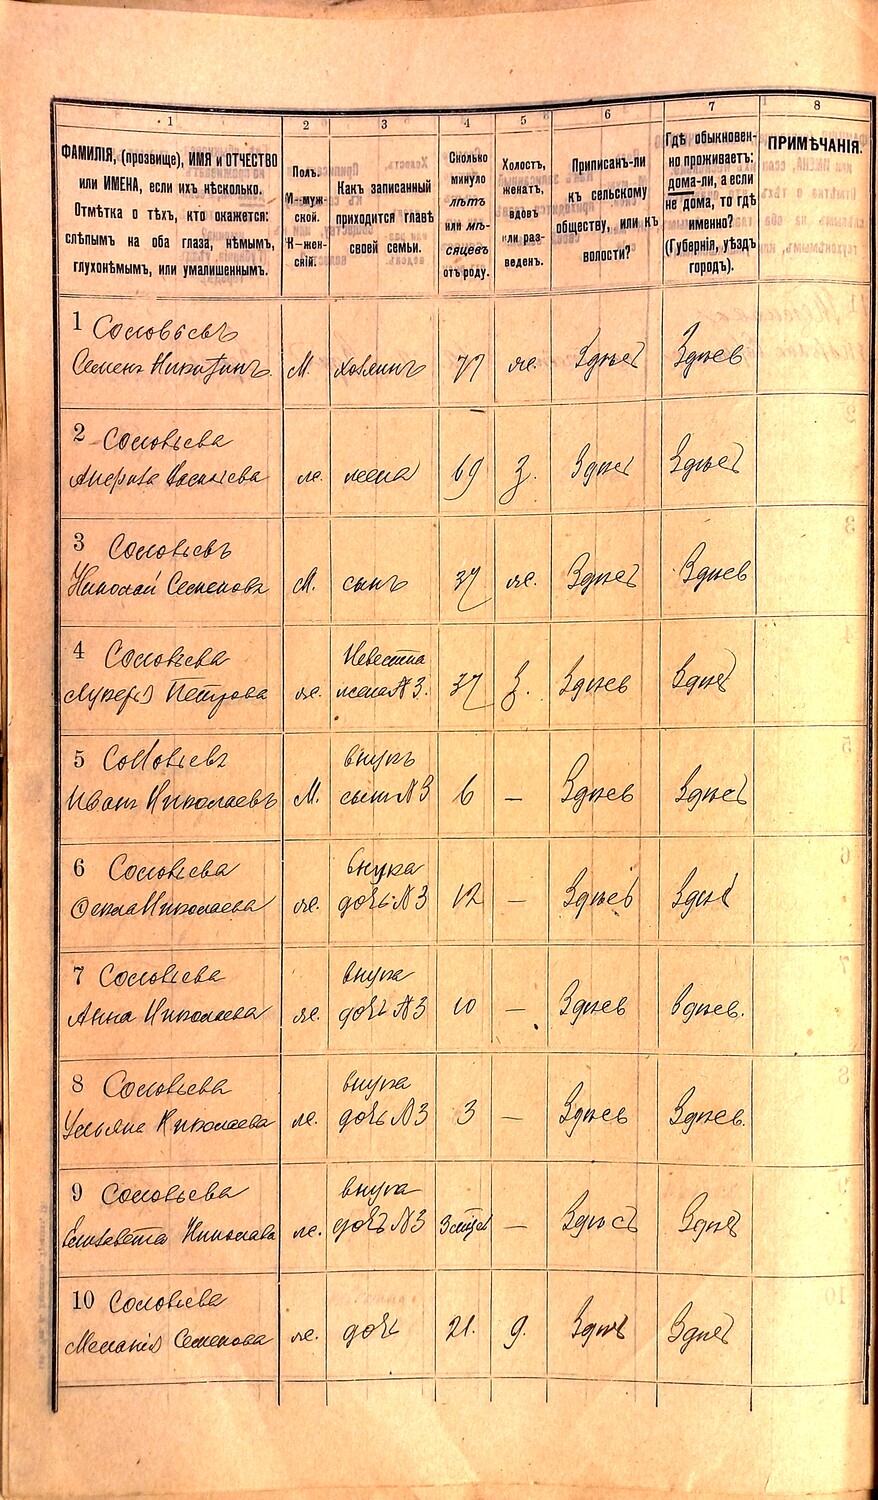 1
2
3
4
5
6
7
8
ФАМИЛІЯ, (прозвище), ИМЯ и ОТЧЕСТВО
или ИМЕНА, если ихъ нѣсколько.
Отмѣтка о тѣхъ, кто окажется:
слѣпымъ на оба глаза, нѣмымъ,
глухонѣмымъ, или умалишеннымъ.
Полъ.
М—муж-
ской.
Ж—жен-
скій.
Какъ записанный
приходится главѣ
своей семьи.
Сколько
минуло
лѣтъ
или мѣ-
сяцевъ
отъ роду.
Холостъ,
женатъ,
вдовъ
или раз-
веденъ.
Приписанъ-ли
къ сельскому
обществу, или къ
волости?
Гдѣ обыкновен-
но проживаетъ:
дома-ли, а если
не дома, то гдѣ
именно?
(Губернія, уѣздъ
городъ).
ПРИМѢЧАНІЯ.
1 Соловьевъ
Семенъ Никитинъ М. хозяинъ 77 же. Здѣсь Здѣсь
2 Соловьева
Васильева же. жена 69 З. Здѣсь Здѣсь
3 Соловьевъ
Николай Семеновъ М. сынъ 37 же. Здѣсь Здѣсь
4 Соловьева Невестка
Лукерья Петрова же. жена №3. 37 З. Здѣсь Здѣсь
5 Соловьевъ внукъ
Иванъ Николаевъ М. сынъ №3 6 — Здѣсь Здѣсь
6 Соловьева внука
Фекла Николаева же. дочь №3 12 — Здѣсь Здѣсь
7 Соловьева внука
Анна Николаева же. дочь №3 10 — Здѣсь Здѣсь.
8 Соловьева внука
Ульяна Николаева же. дочь №3 3 — Здѣсь Здѣсь.
9 Соловьева внука
Елизавета Николава же. дочь №3 — Здѣсь Здѣсь
10 Соловьева
Меланія Семенова же. дочь 21. д. Здѣсь Здѣсь